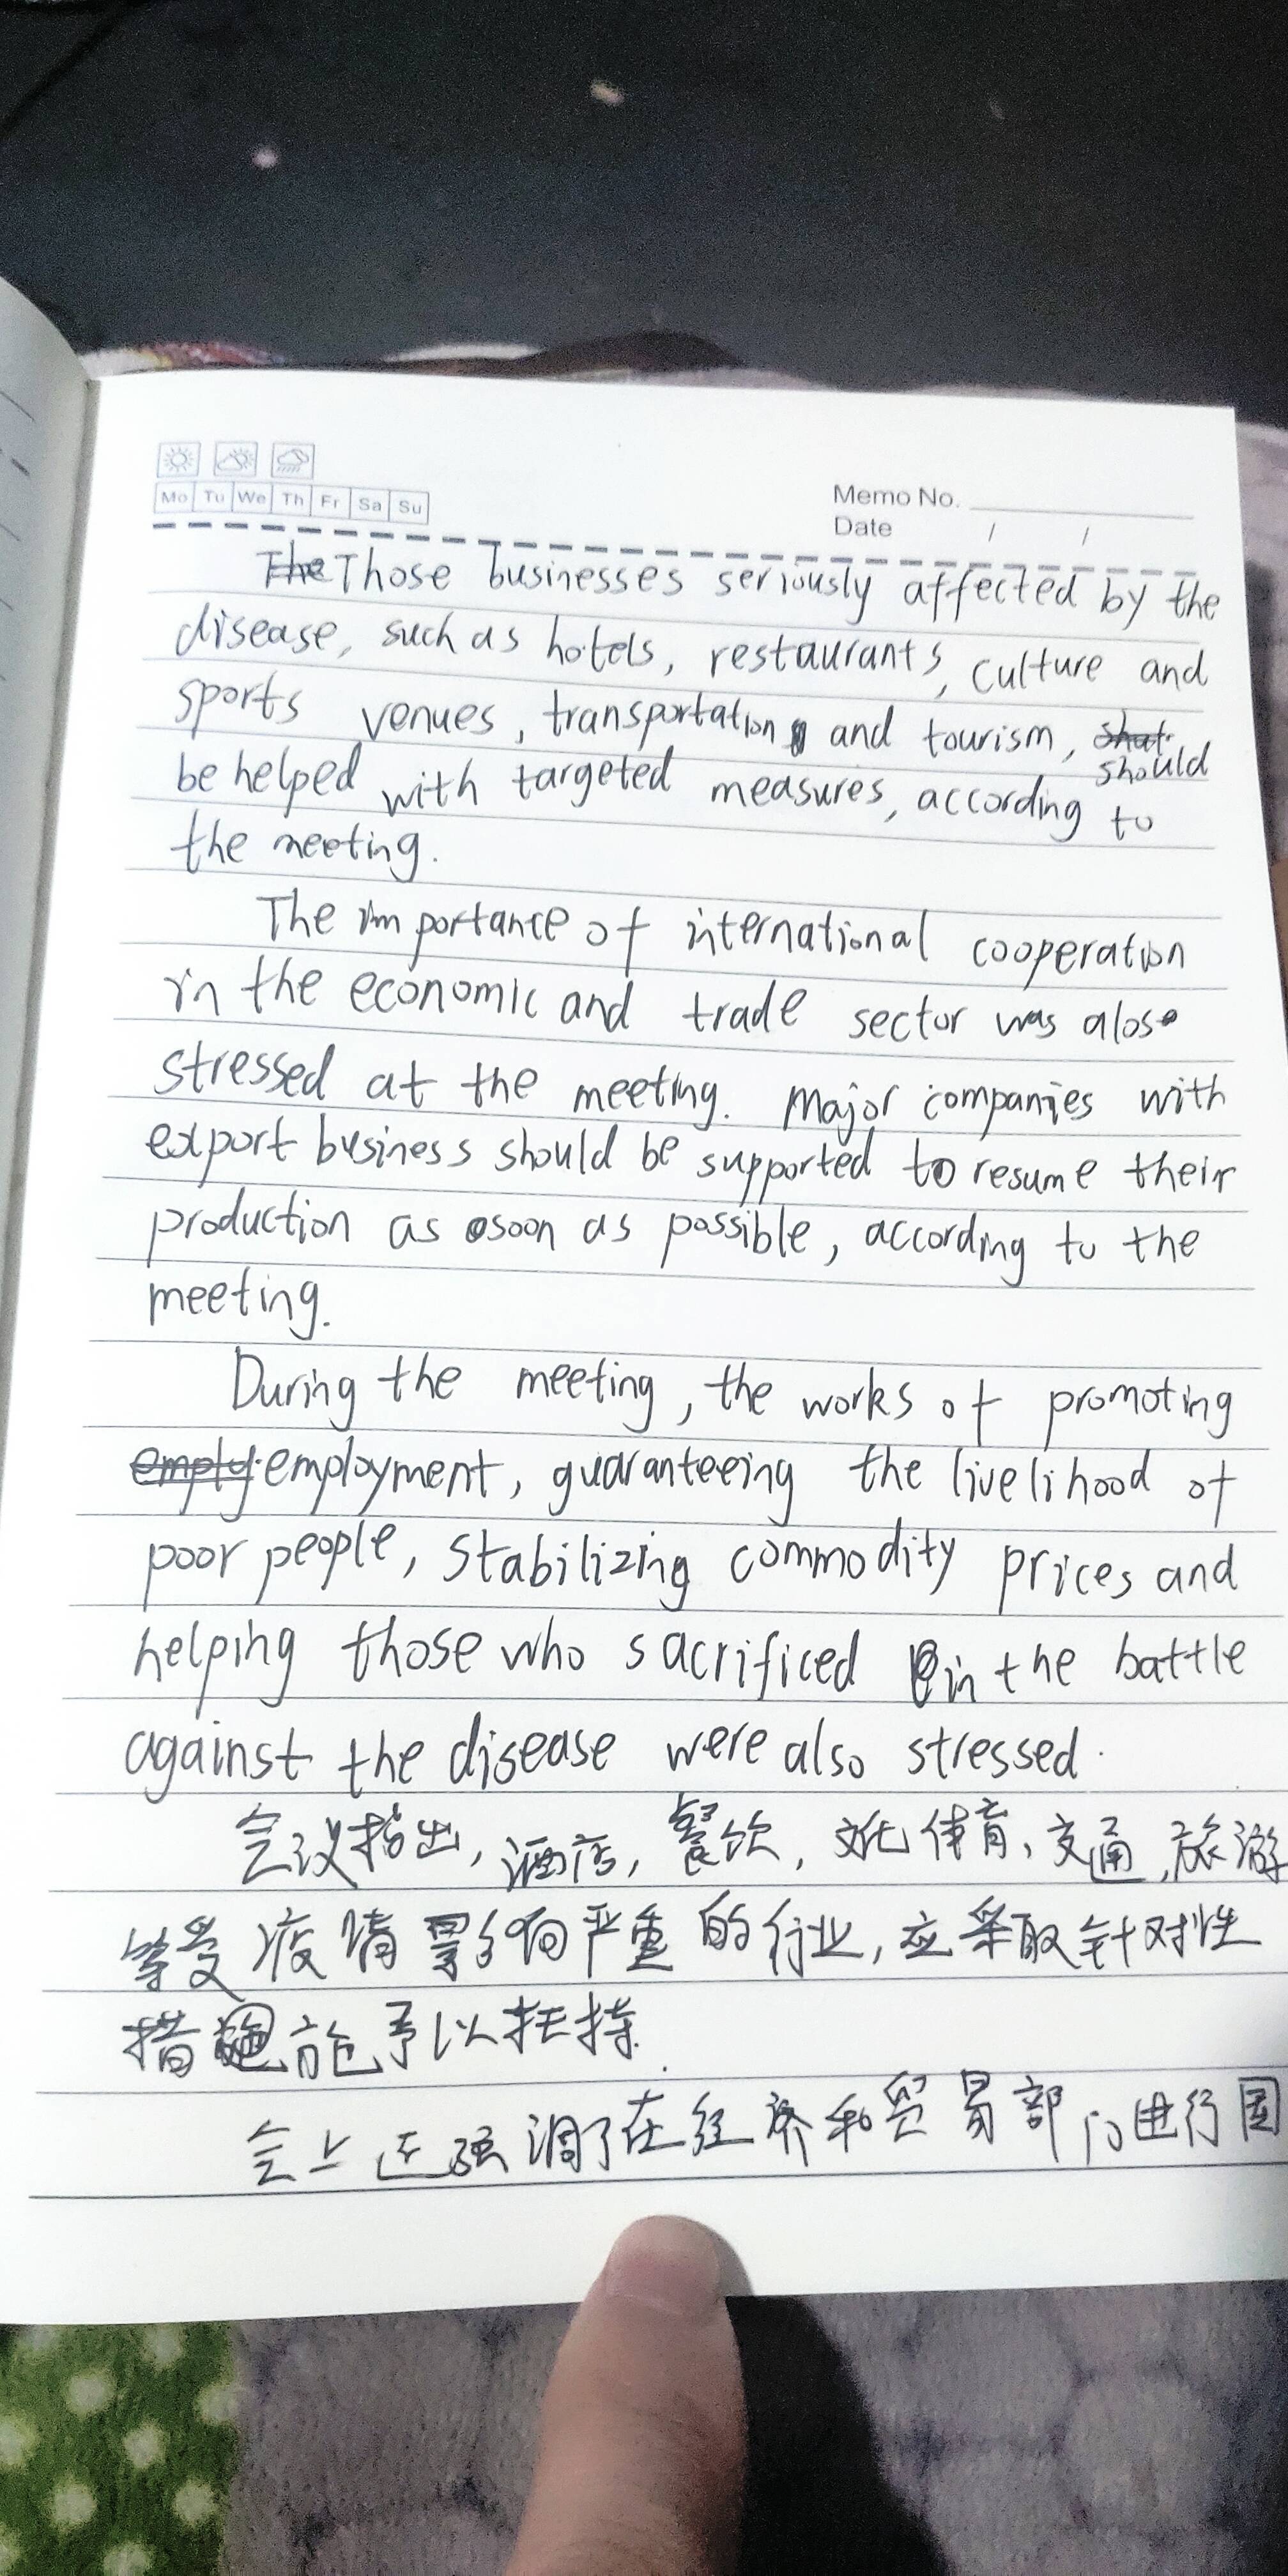 Mo Tu We Th Fr Sa Su
Memo No.
Date / /
The Those businesses seriously affected by the
disease, such as hotels, restaurants, culture and
sports venues, transportation and tourism,
should
be helped with targeted measures, according to
the meeting.
The importance of international cooperation
in the economic and trade sector was alos
stressed at the meeting. Major companies with
export business should be supported to resume their
production as soon as possible, according to the
meeting.
During the meeting, the works of promoting
employ employment, guaranteeing the livelihood of
poor people, stabilizing commodity prices and
helping those who sacrificed in the battle
against the disease were also stressed.
会议指出,酒店,餐饮,文化体育、交通,旅游
等受疫情影响严重的行业,应采取针对性
措施予以扶持.
会上还强调了在经济和贸易部门进行国